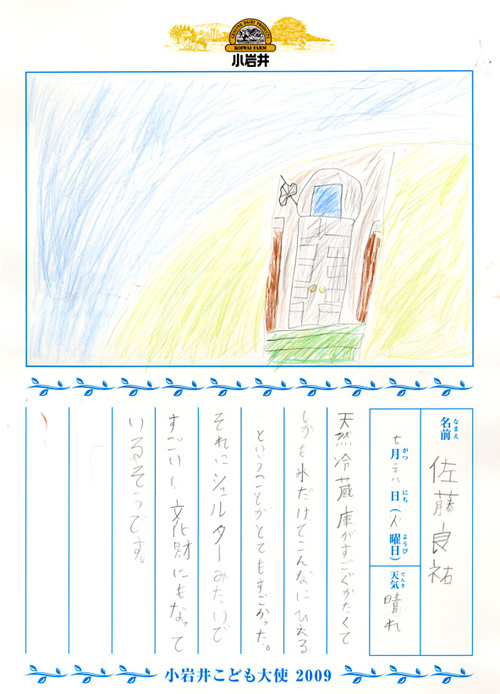 GENUINE DAIRY PRODUCTS
KOIWAI FARM
小岩井
名前 佐藤良祐
なまえ
七月二八日(火曜日)
がつ にち ようび
天気 晴れ
てんき
天然冷蔵庫がすごくかたくて
しかも氷だけでこんなにひえる
ということがとてもすごかった。
それにシェルターみたいで
すごいし、文化財にもなって
いるそうです。
小岩井こども大使 2009